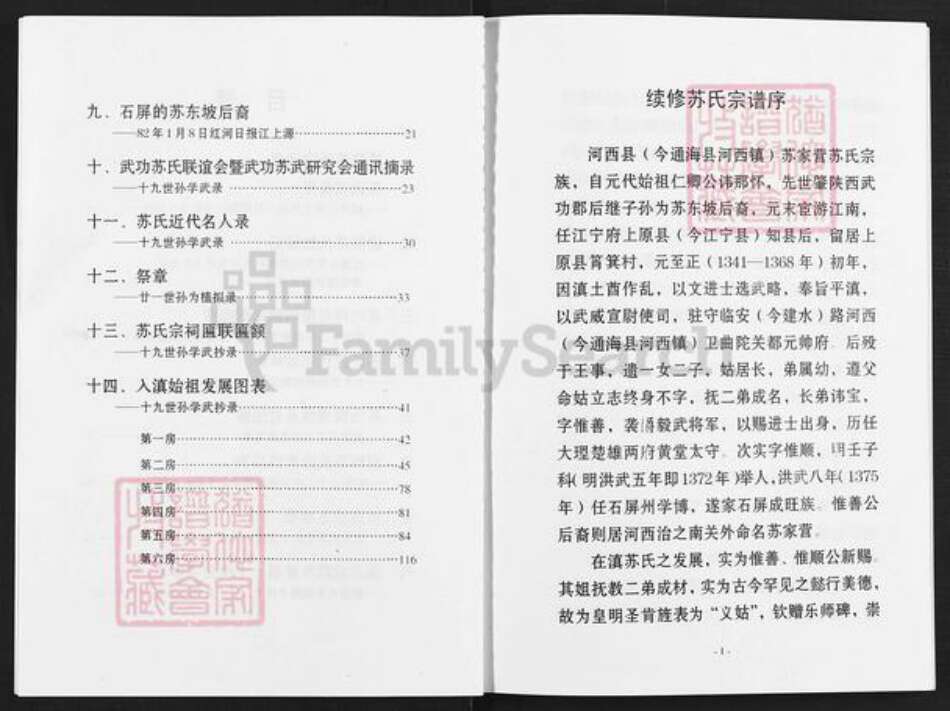 九、石屏的苏东坡后裔
——82年1月8日红河日报江上源……21
十、武功苏氏联谊会暨武功苏武研究会通讯摘录
——十九世孙学武录……23
十一、苏氏近代名人录
——十九世孙学武录……30
十二、祭章
——廿一世孙为植拟录……33
十三、苏氏宗祠匾联匾额
——十九世孙学武抄录……37
十四、入滇始祖发展图表
——十九世孙学武抄录……41
第一房……42
第二房……45
第三房……78
第四房……81
第五房……84
第六房……116
续修苏氏宗谱序
河西县（今通海县河西镇）苏家营苏氏宗
族，自元代始祖仁卿公讳那怀，先世肇陕西武
功郡后继子孙为苏东坡后裔，元末宦游江南，
任江宁府上原县（今江宁县）知县后，留居上
原县筲箕村，元至正（1341—1368年）初年，
因滇土酋作乱，以文进士选武略，奉旨平滇，
以武威宣尉使司，驻守临安（今建水）路河西
（今通海县河西镇）卫曲陀关都元帅府。后殁
于王事，遗一女二子，姑居长，弟属幼，遵父
命姑立志终身不字，抚二弟成名，长弟讳宝，
字惟善，袭爵毅武将军，以赐进士出身，历任
大理楚雄两府黄堂太守。次实字惟顺，明壬子
科（明洪武五年即1372年）举人，洪武八年（1375
年）任石屏州学博，遂家石屏成旺族。惟善公
后裔则居河西治之南关外命名苏家营。
在滇苏氏之发展，实为惟善、惟顺公新赐。
其姐抚教二弟成材，实为古今罕见之懿行美德，
故为皇明圣肯旌表为“义姑”，钦赠乐师碑，崇
-1-
FamilySearch